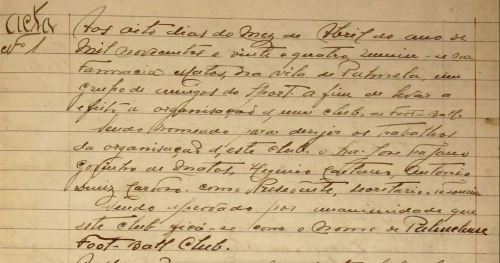 Acta
nº 1
Aos oito dias do Mez de Abril do ano de
Mil novecentos e vinte e quatro, reuniu-se na
Farmacia Matos, na vila de Palmela, um
grupo de amigos do Sport a fim de levar a
efeito a organisação d'um club de Foot-Ball.
Sendo nomeado para dirijir os trabalhos
da organisação d'este club. o Snr. José
Godinho de Matos, Caetano, Antonio
Diniz Cardoso. como Presidente, secretario,
Sendo aprovado por unanimidade que
este Club fica-se com o nome de Palmelense
Foot-Ball Club.